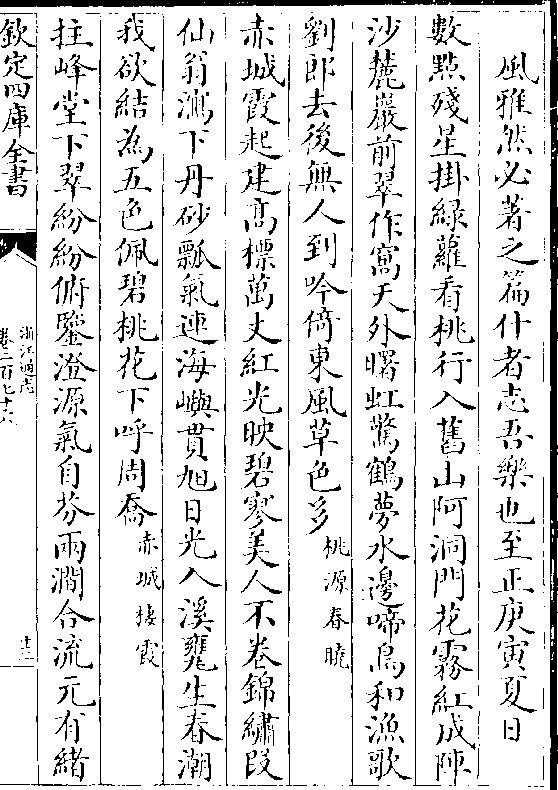 風雅然必著之篇什者志吾樂也至正庚寅夏日
數點殘星掛綠蘿看桃行入舊山阿洞門花霧紅成陣
沙麓巖前翠作窩天外曙虹驚鶴夢水邊啼鳥和漁歌
劉郎去後無人到吟倚東風草色多桃源春曉
赤城霞起建高標萬丈紅光映碧寥美人不卷錦繡段
仙翁瀉下丹砂瓢氣連海嶼貫旭日光入溪甕生春潮
我欲結為五色佩碧桃花下呼周喬赤城棲霞
拄峰堂下翠紛紛俯鑒澄源氣自芬兩澗合流元有緒
欽定四庫全書
浙江通志
卷二百七十六
廿二